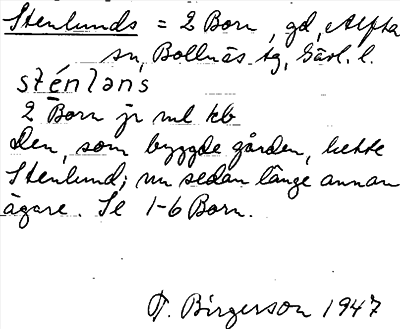 Stenlunds = 2 Born, gd, Alfta
sn, Bollnäs tg, Gävl. l.
sténlans
2 Born jr ml kb
Den, som byggde gården, hette
Stenlund; nu sedan länge annan
ägare. Se 1-6 Born.
T. Birgerson 1947